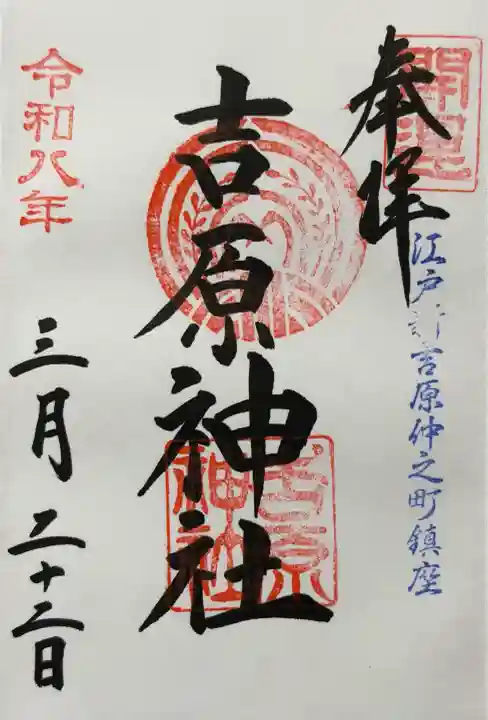 開運
奉拝
江戸新吉原仲之町鎮座
吉原神社
吉原
神社
令和八年
三月二十二日